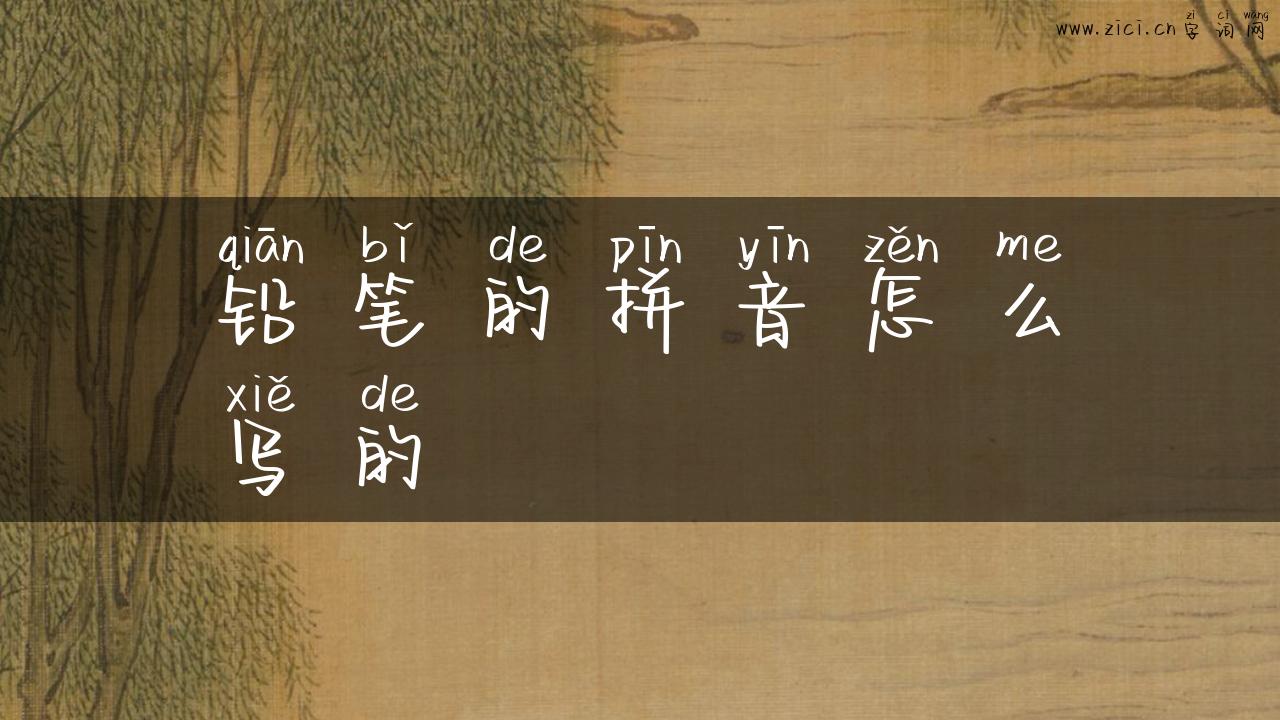 zì cí wǎng
www.zici.cn 字词网
qiān bǐ de pīn yīn zěn me
铅笔的拼音怎么
xiě de
写的